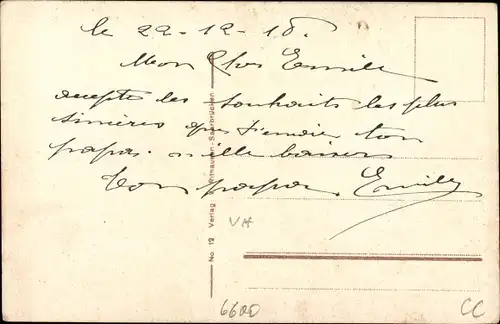 le 22-12-18.
Mon Cher Emile
accepte les souhaits les plus
sincères que t'envoie ton
papa. mille baisers
Ton papa. Emile
No. 12 Verlag Saarbrücken
VH
6600
CC